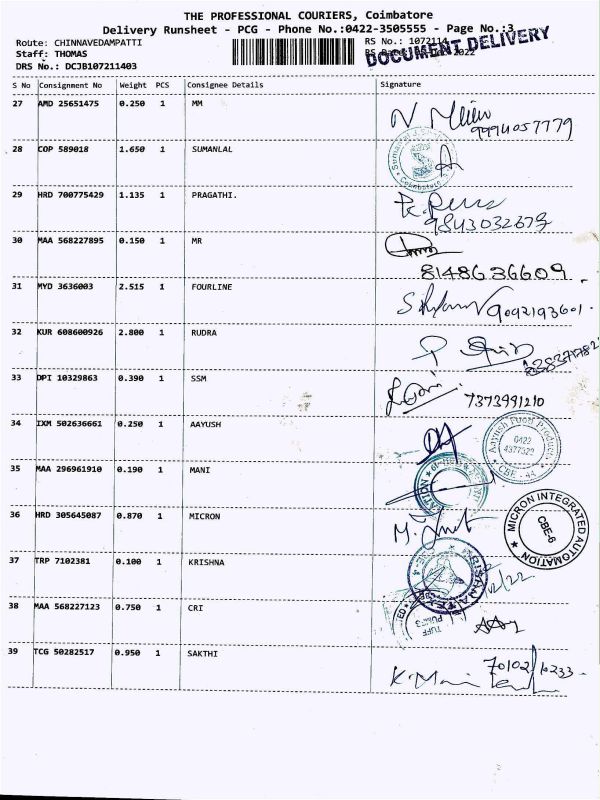 THE PROFESSIONAL COURIERS, Coimbatore
Delivery Runsheet - PCG - Phone No.:0422-3505555 - Page No.:3
Route: CHINNAVEDAMPATTI
RS No.: 1072114
Staff: THOMAS
DOCUMENT DELIVERY
DRS No.: DCJB107211403
S No Consignment No Weight PCS Consignee Details Signature
27 AMD 25651475 0.250 1 MM
9994057779
28 COP 589018 1.650 1 SUMANLAL
29 HRD 700775429 1.135 1 PRAGATHI.
30 MAA 568227895 0.150 1 MR
8148636609
31 MYD 3636003 2.515 1 FOURLINE
9092193601
32 KUR 608600926 2.800 1 RUDRA
33 DPI 10329863 0.390 1 SSM
7373991210
34 IXM 502636661 0.250 1 AAYUSH
Aayush Food Products
0422
4377322
CBE - 44
35 MAA 296961910 0.190 1 MANI
36 HRD 305645087 0.870 1 MICRON
MICRON INTEGRATED AUTOMATION
CBE-6
37 TRP 7102381 0.100 1 KRISHNA
38 MAA 568227123 0.750 1 CRI
TUFF
39 TCG 50282517 0.950 1 SAKTHI
70102 10233